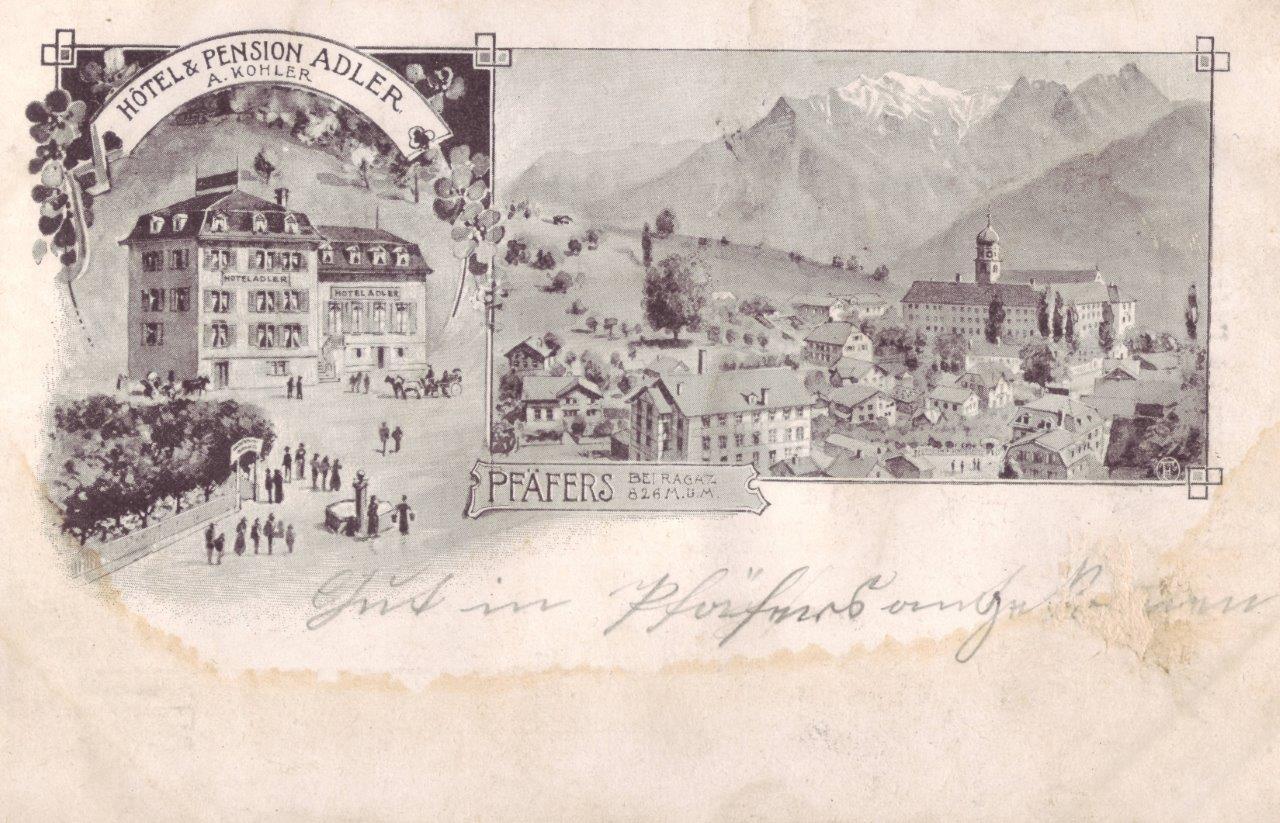 HÔTEL & PENSION ADLER.
A. KOHLER
HOTEL ADLER
HOTEL ADLER
PFÄFERS BEI RAGAZ
826 M. Ü. M.
Gut in Pfäfers